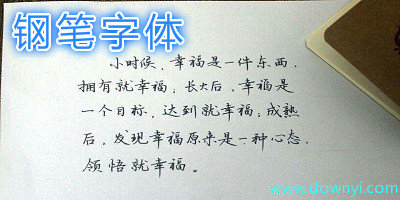 钢笔字体
小时候，幸福是一件东西，
拥有就幸福，长大后，幸福是
一个目标，达到就幸福；成熟
后，发现幸福原来是一种心态，
领悟就幸福。
www.downyi.com